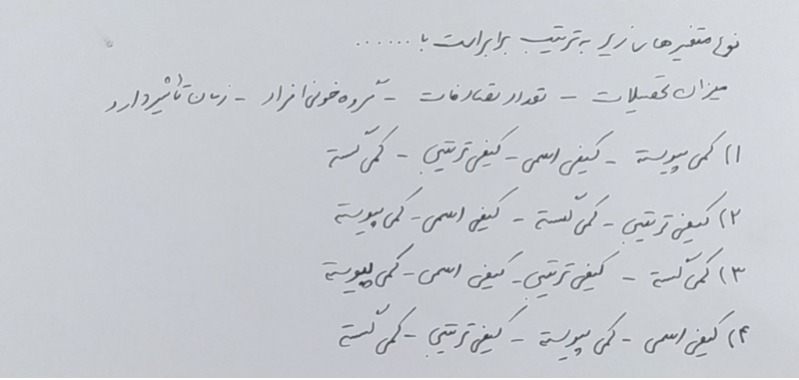 نوع متغیرهای زیر به ترتیب برابر است با ......
میزان تحصیلات - تعداد تصادفات - گروه خونی افراد - زمان تاثیر دارو
۱) کمی پیوسته - کیفی اسمی - کیفی ترتیبی - کمی گسسته
۲) کیفی ترتیبی - کمی گسسته - کیفی اسمی - کمی پیوسته
۳) کمی گسسته - کیفی ترتیبی - کیفی اسمی - کمی پیوسته
۴) کیفی اسمی - کمی پیوسته - کیفی ترتیبی - کمی گسسته